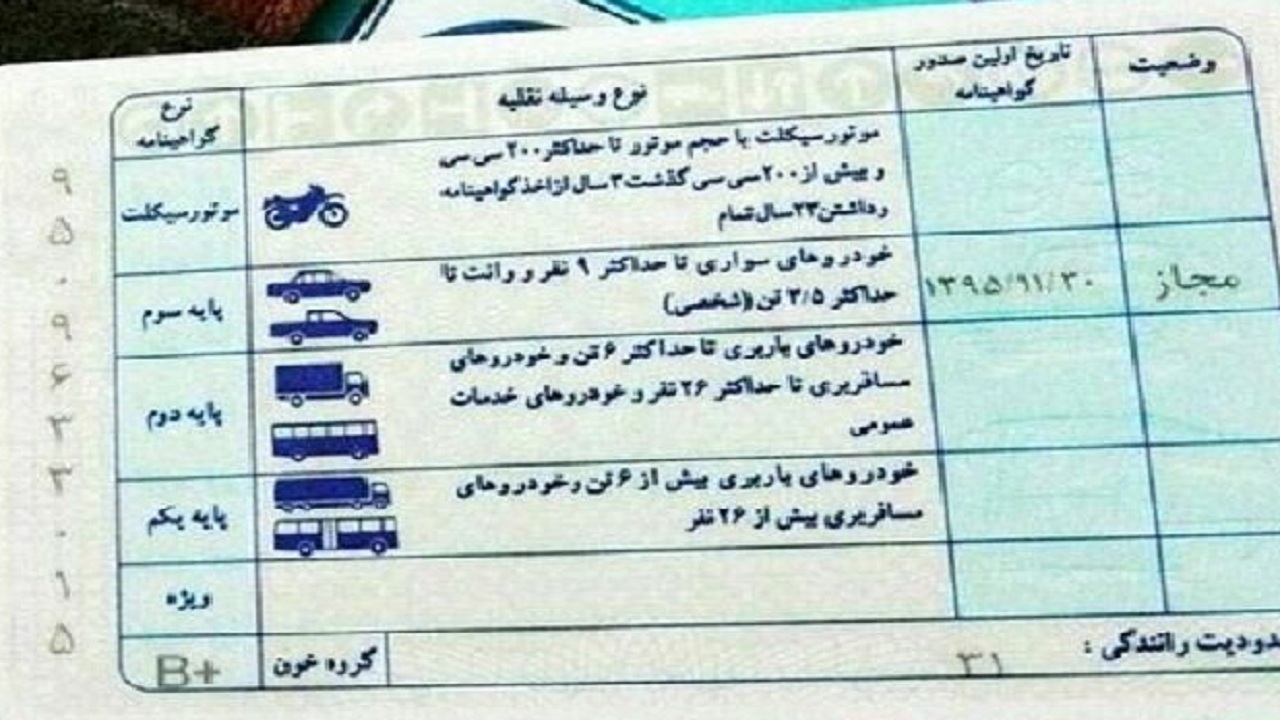 نوع گواهینامه
نوع وسیله نقلیه
تاریخ اولین صدور گواهینامه
وضعیت
موتورسیکلت
موتورسیکلت با حجم موتور تا حداکثر ۲۰۰ سی سی
و بیش از ۲۰۰ سی سی گذشت ۳ سال از اخذ گواهینامه
رداشتن ۲۳ سال تمام
پایه سوم
خودروهای سواری تا حداکثر ۹ نفر و وانت تا
حداکثر ۳/۵ تن (شخصی)
۱۳۹۵/۹۱/۳۰
مجاز
پایه دوم
خودروهای باربری تا حداکثر ۶ تن و خودروهای
مسافربری تا حداکثر ۲۶ نفر و خودروهای خدمات
عمومی
پایه یکم
خودروهای باربری بیش از ۶ تن وخودروهای
مسافربری بیش از ۲۶ نفر
ویژه
B+
گروه خون
دودیت رانندگی :
۳۱
۹۵۰۹۶۳۳۰۱۵